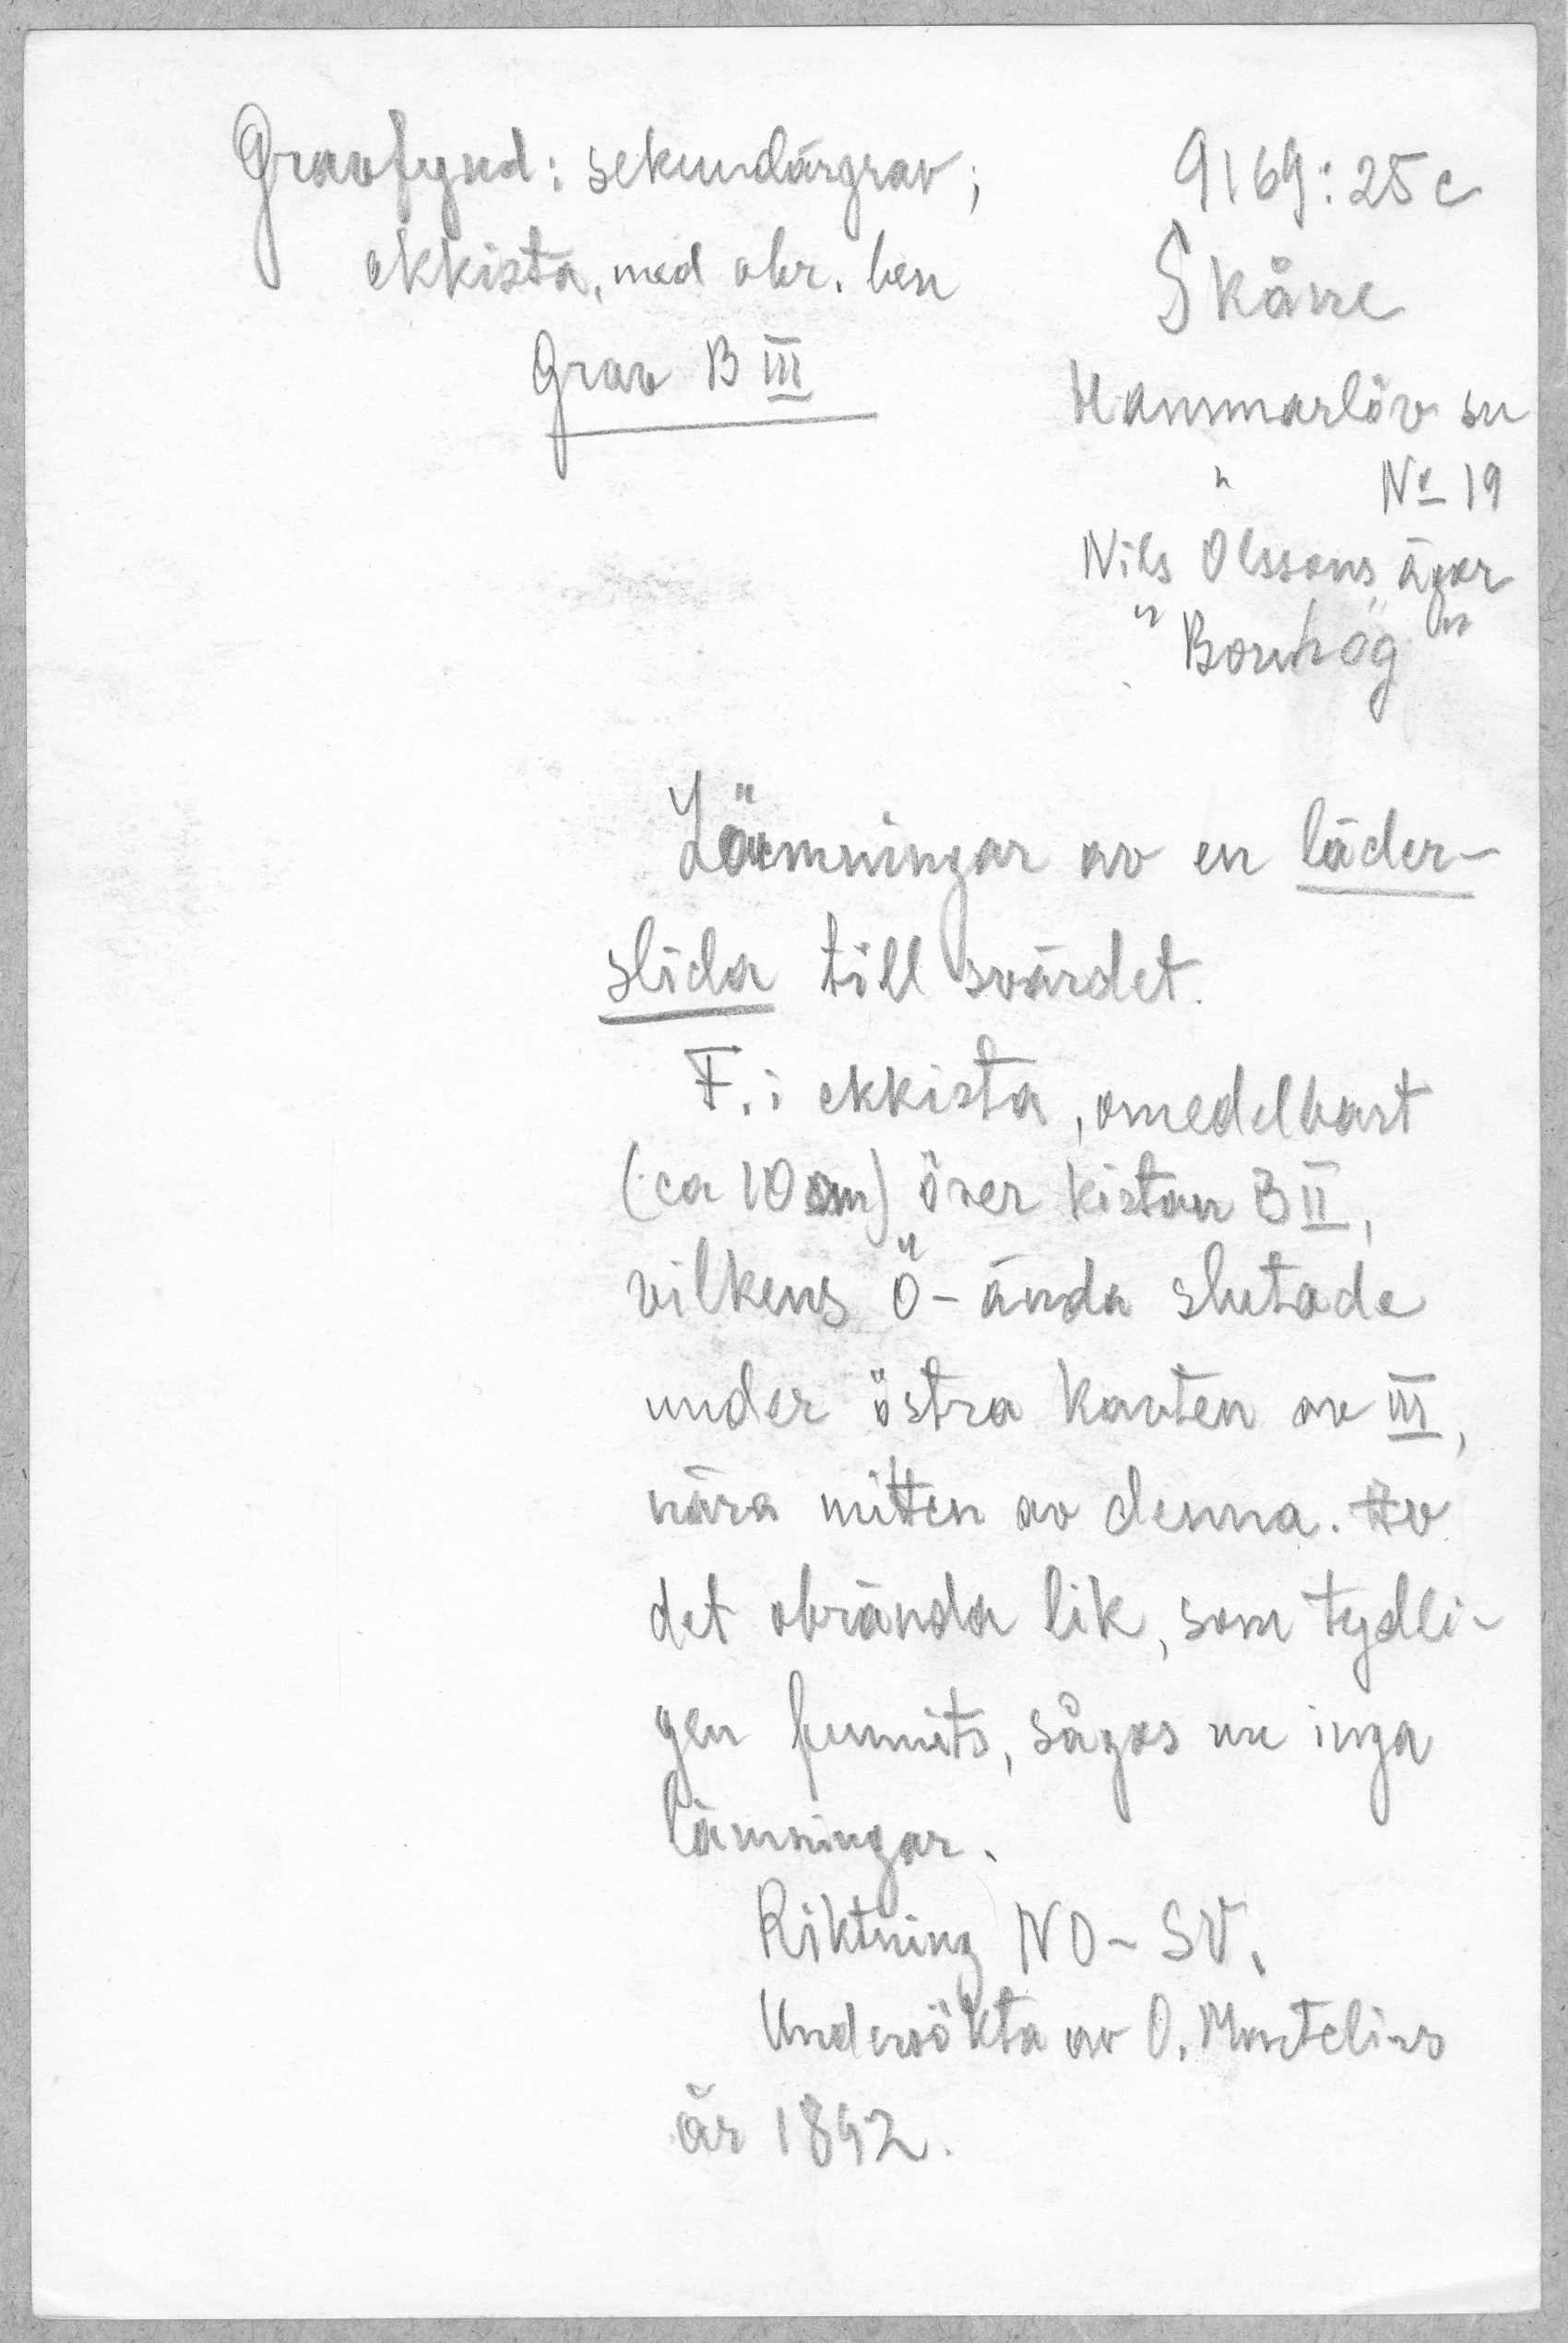 Gravfynd: sekundärgrav;
ekkista, med obr. ben
Grav B III
9169:25c
Skåne
Hammarlöv sn
" No 19
Nils Olssons ägor
"Bonhög"
Lämningar av en läder-
slida till svärdet.
F. i ekkista, omedelbart
(ca 10 cm) över kistan B II,
vilkens Ö-ända slutade
under östra kanten av III,
nära mitten av denna. Av
det obrända lik, som tydli-
gen funnits, sågos nu inga
lämningar.
Riktning NO-SV.
Undersökta av O. Montelius
år 1892.